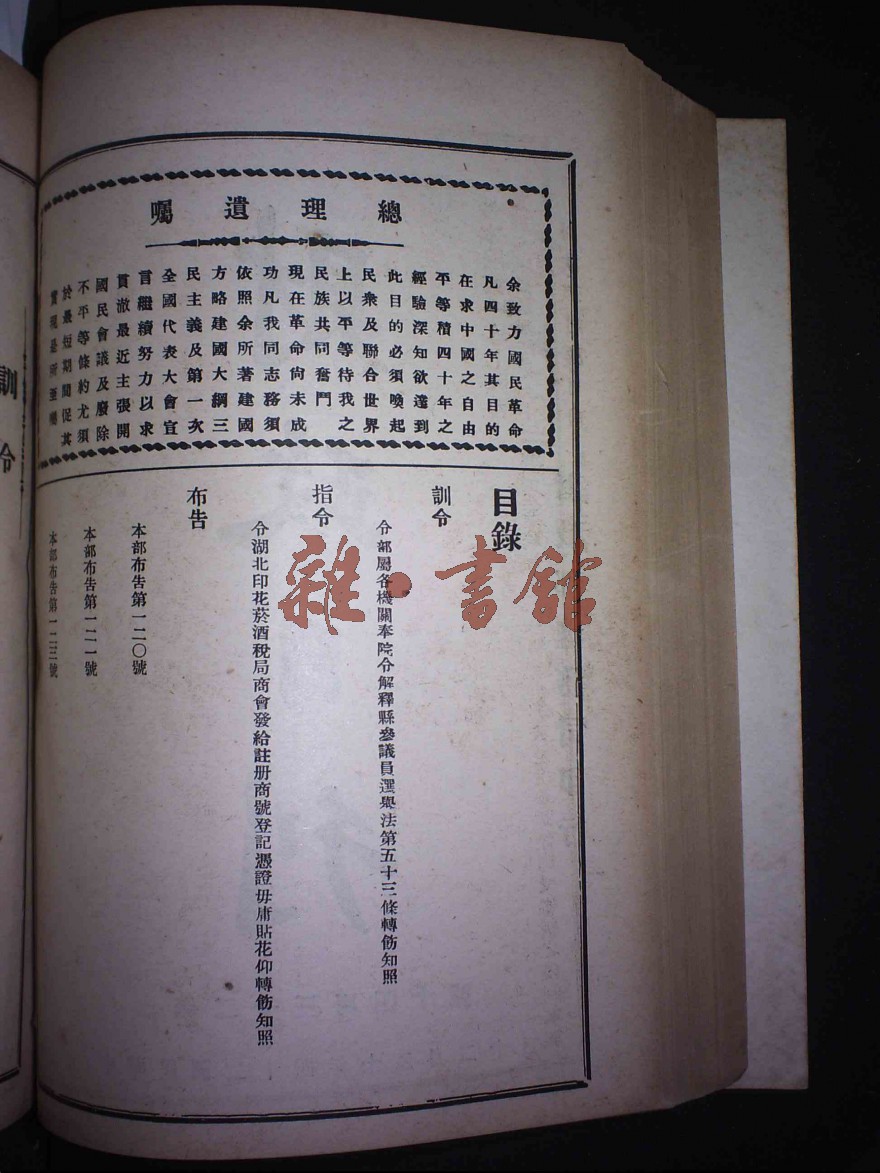 總理遺囑
余致力國民革命
凡四十年其目的
在求中國之自由
平等積四十年之
經驗深知欲達到
此目的必須喚起
民衆及聯合世界
上以平等待我之
民族共同奮鬥
現在革命尙未成
功凡我同志務須
依照余所著建國
方略建國大綱三
民主義及第一次
全國代表大會宣
言繼續努力以求
貫澈最近主張開
國民會議及廢除
不平等條約尤須
於最短期間促其
實現是所至囑
目錄
訓令
令部屬各機關奉院令解釋縣參議員選舉法第五十三條轉飭知照
指令
令湖北印花菸酒稅局商會發給註册商號登記憑證毋庸貼花仰轉飭知照
布告
本部布告第一二〇號
本部布告第一二一號
本部布告第一二三號
訓令
雜·書館